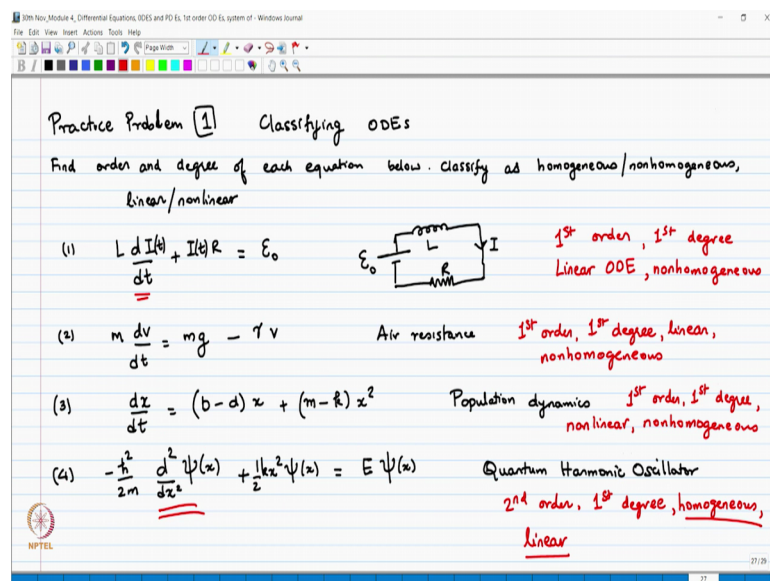 30th Nov_Module 4_ Differential Equations, ODES and PD Es, 1st order OD Es, system of - Windows Journal
File Edit View Insert Actions Tools Help
Page Width
B I
Practice Problem 1 Classifying ODEs
Find order and degree of each equation below. Classify as homogeneous/nonhomogeneous,
linear/nonlinear
(1) L dI(t)/dt + I(t)R = ℰ₀ ℰ₀ L I R 1st order, 1st degree
Linear ODE, nonhomogeneous
(2) m dv/dt = mg - γv Air resistance 1st order, 1st degree, linear,
nonhomogeneous
(3) dx/dt = (b-d)x + (m-k)x² Population dynamics 1st order, 1st degree,
nonlinear, nonhomogeneous
(4) -ħ²/2m d²/dx² ψ(x) + 1/2 kx² ψ(x) = E ψ(x) Quantum Harmonic Oscillator
2nd order, 1st degree, homogeneous,
linear
NPTEL
27/29
27